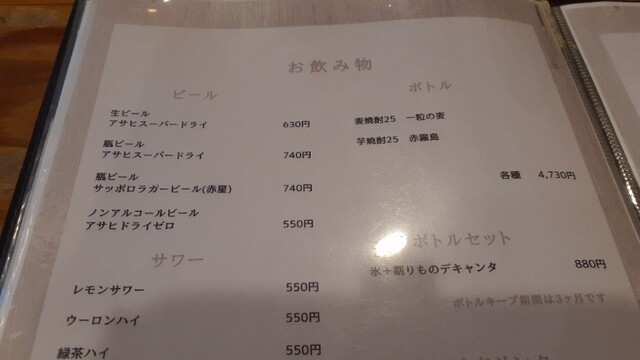 お飲み物
ビール
生ビール
アサヒスーパードライ 630円
瓶ビール
アサヒスーパードライ 740円
瓶ビール
サッポロラガービール(赤星) 740円
ノンアルコールビール
アサヒドライゼロ 550円
サワー
レモンサワー 550円
ウーロンハイ 550円
緑茶ハイ 550円
ボトル
麦焼酎25 一粒の麦
芋焼酎25 赤霧島
各種 4,730円
ボトルセット
氷+割りものデキャンタ 880円
ボトルキープ期間は3ヶ月です